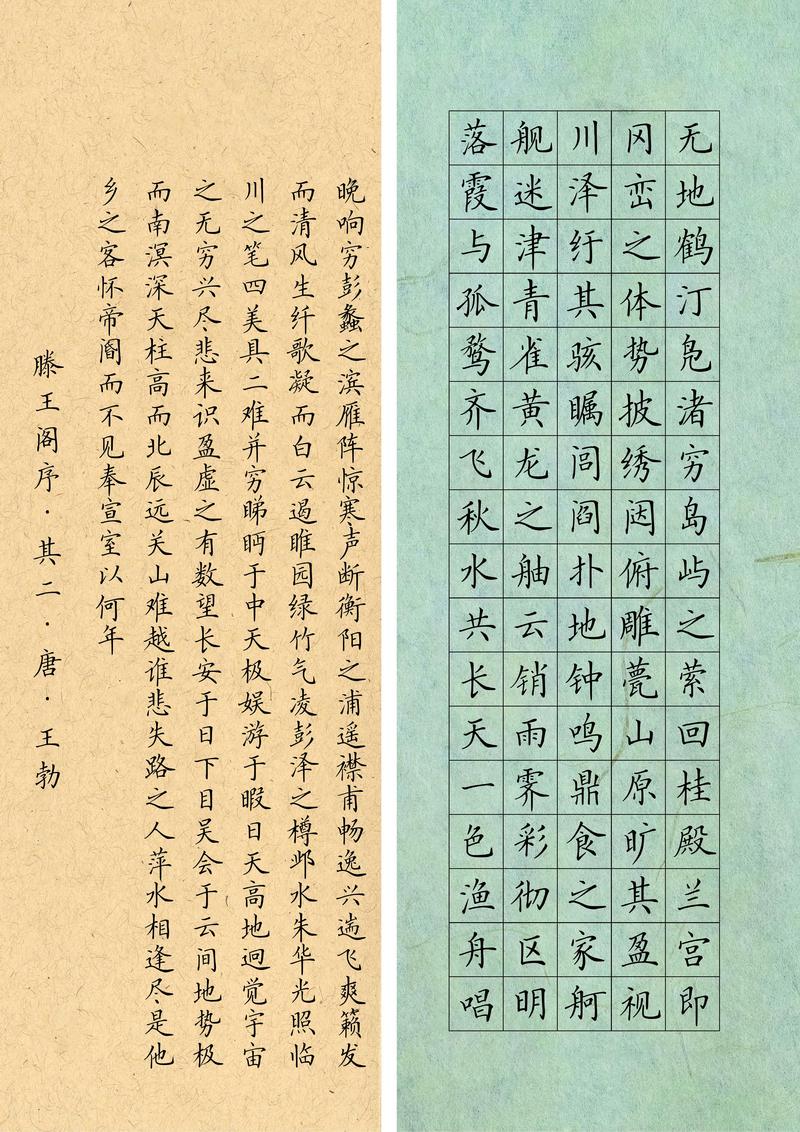 无地鹤汀凫渚穷岛屿之萦回桂殿兰宫即
冈峦之体势披绣闼俯雕甍山原旷其盈视
川泽纡其骇瞩闾阎扑地钟鸣鼎食之家舸
舰迷津青雀黄龙之舳云销雨霁彩彻区明
落霞与孤鹜齐飞秋水共长天一色渔舟唱
晚响穷彭蠡之滨雁阵惊寒声断衡阳之浦遥襟甫畅逸兴遄飞爽籁发
而清风生纤歌凝而白云遏睢园绿竹气凌彭泽之樽邺水朱华光照临
川之笔四美具二难并穷睇眄于中天极娱游于暇日天高地迥觉宇宙
之无穷兴尽悲来识盈虚之有数望长安于日下目吴会于云间地势极
而南溟深天柱高而北辰远关山难越谁悲失路之人萍水相逢尽是他
乡之客怀帝阍而不见奉宣室以何年
滕王阁序·其二·唐·王勃